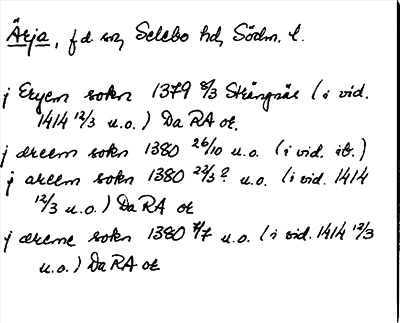 Ärja, f d sn, Selebo hd, Södm. l.
j Eryem sokn 1379 8/3 Strängnäs (i vid.
1414 12/3 u.o.) Da RA or.
j æreem sokn 1380 26/10 u.o. (i vid. ib.)
j areem sokn 1380 22/3? u.o. (i vid. 1414
12/3 u.o.) Da RA or
j æreme sokn 1380 7/7 u.o. (i vid. 1414 12/3
u.o.) Da RA or